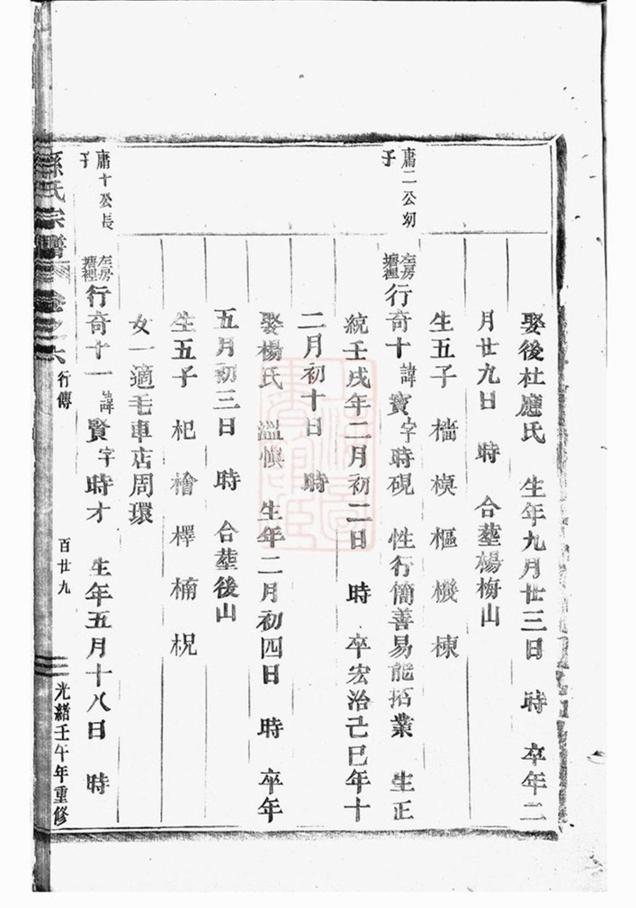 娶後杜應氏 生年九月廿三日 時 卒年二
月廿九日 時 合塟楊梅山
生五子 檣 模 樞 機 棟
庸二公初子
左房塘裡行奇十諱寳字時硯 性行簡善易能拓業 生正
統壬戌年二月初二日 時 卒宏治己巳年十
二月初十日 時
娶楊氏 溫慎 生年二月初四日 時 卒年
五月初三日 時 合塟後山
生五子 杞 檜 檡 楠 柷
女一適毛車店周環
庸十公長子
左房塘裡行奇十一諱賢字時才 生年五月十八日 時
孫氏宗譜 卷之六 行傳 百廿九 光緒壬午年重修